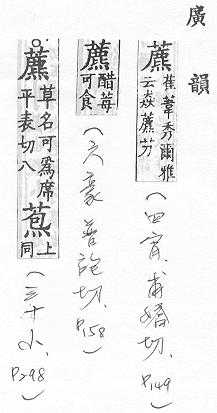 廣韻
藨
萑葦秀爾雅
云猋藨芀
(四宵, 甫嬌切, P149)
藨
醋莓
可食
(六豪 普袍切, P158)
藨
草名可爲席
平表切八
苞
上
同
(三十小, P298)